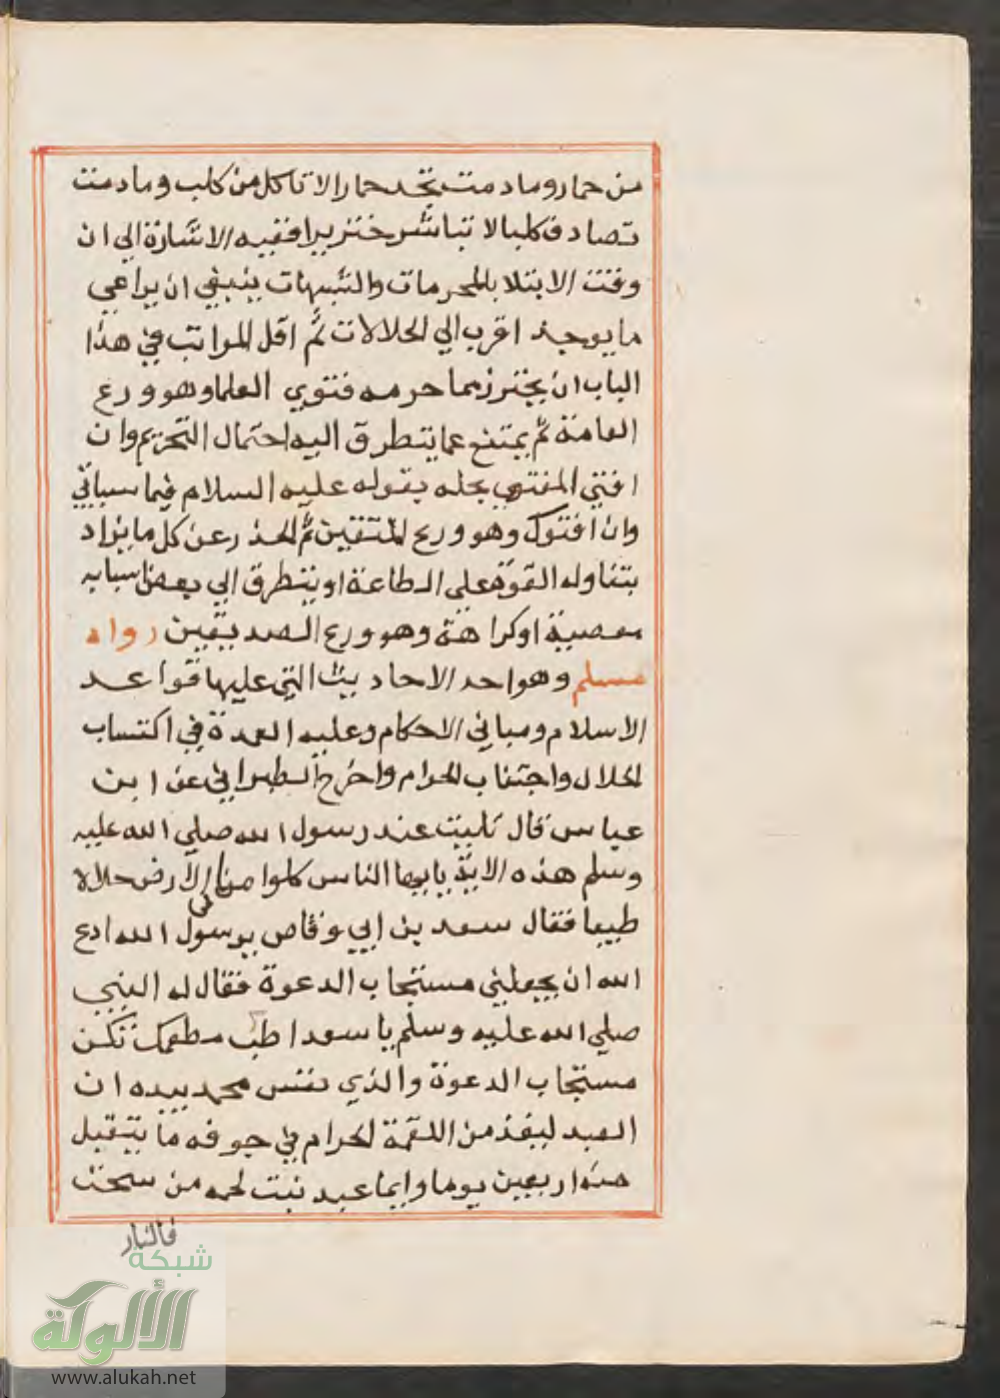 من حمار وما دمت تجد حمارا لا تاكل من كلب وما دمت
تصادف كلبا لا تباشر خنزيرا ففيه الاشارة الي ان
وقت الابتلا بالمحرمات والشبهات ينبغي ان يراعي
ما يوجد اقرب الي الحلالات ثم اقل المراتب في هذا
الباب ان يحترز مما حرمه فتوي العلما وهو ورع
العامة ثم يمتنع عما يتطرق اليه احتمال التحريم وان
افتي المفتي بحله بقوله عليه السلام فيما سياتي
وان افتوك وهو ورع المتقين ثم الحذر عن كل ما يراد
بتناوله القوة على الطاعة او يتطرق الي بعض اسبابه
معصية او كراهة وهو ورع الصديقين رواه
مسلم وهو احد الاحاديث التي عليها قواعد
الاسلام ومباني الاحكام وعليه العمدة في اكتساب
الحلال واجتناب الحرام واخرج الطبراني عن ابن
عباس قال تليت عند رسول الله صلي الله عليه
وسلم هذه الاية يا ايها الناس كلوا مما في الارض حلالا
طيبا فقال سعد بن ابي وقاص يرسول الله ادع
الله ان يجعلني مستجاب الدعوة فقال له النبي
صلي الله عليه وسلم يا سعد اطب مطعمك تكن
مستجاب الدعوة والذي نفس محمد بيده ان
العبد ليقذف من اللقمة الحرام في جوفه ما يتقبل
منه اربعين يوما وايما عبد نبت لحمه من سحت
فالنار
شبكة
الألوكة
www.alukah.net